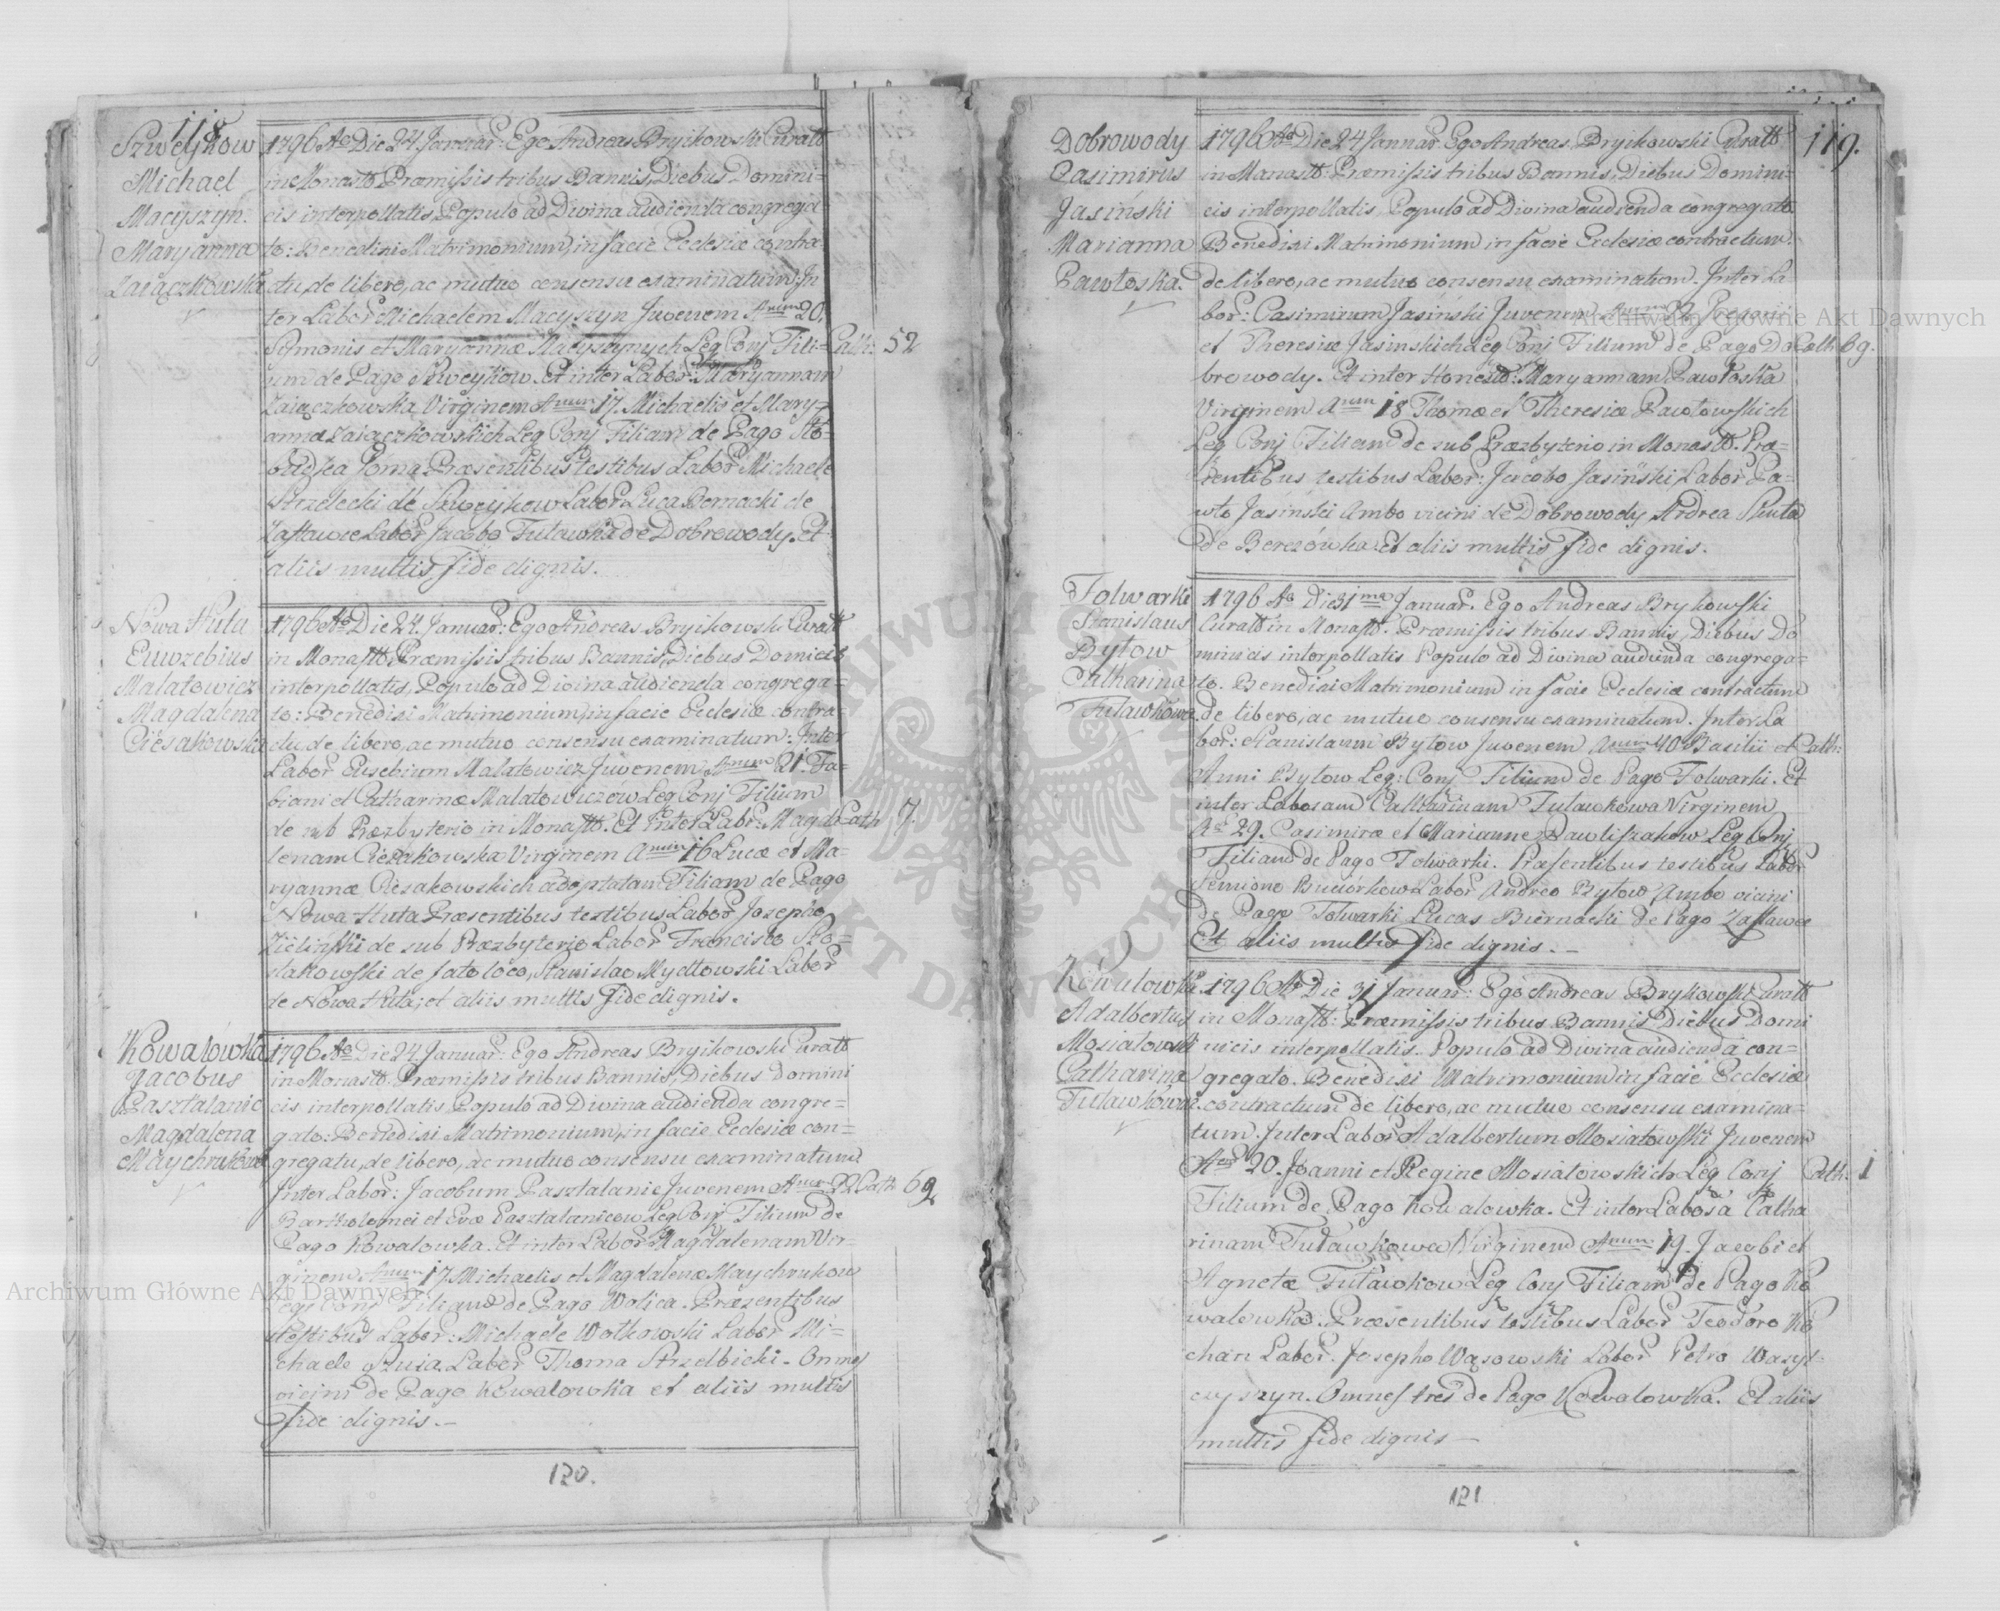 118
Szweykow
Michael
Macyszyn.
Maryanna
Zaiączkowska
1796 Ao Die 24 Januar: Ego Andreas Bryikowski Curatt
in Monastt: Præmissis tribus Bannis, Diebus Domini=
cis interpollatis, Populo ad Divina audienda congrega=
to: Benedixi Matrimonium, in facie Ecclesiæ contra
ctu, de libero, ac mutuo consensu examinatum In
ter Labor Michaelem Macyszyn Juvenem Anum 20.
Symonis et Maryannæ Macyszynych Leg Conj Fili=
Cath: 52
um de Pago Szweykow. Et inter Labor: Maryannam
Zaiączkowska Virginem Anum 17. Michaelis et Mary=
annæ Zaiączkowskich Leg Conj Filiam de Pago Sło=
bodska Præsentibus testibus Labor Michaele
Strzelecki de Szweykow Labor Luca Bernacki de
Zastawce Labor Jacobo Tuławka de Dobrowody. Et
aliis multis fide dignis.
Nowa Huta
Euwzebius
Malatowicz
Magdalena
Ciesakowska
1796 Ao Die 24. Januar: Ego Andreas Bryikowski Curatt
in Monastt, Præmissis tribus Bannis, Diebus Domicis
interpollatis, Populo ad Divina audienda congrega=
to: Benedixi Matrimonium, in facie Ecclesiæ contra=
ctu, de libero, ac mutuo consensu examinatum: Inter
Labor Eusebium Malatowicz Juvenem Anum 21. Fa=
biani et Catharinæ Malatowiczow Leg Conj Filium
de sub Præzbyterio in Monastt. Et Inter Labr: Magda
Cath 7.
lenam Ciesakowska Virginem Anum 16 Lucæ et Ma=
ryannæ Ciesakowskich adoptatam Filiam de Pago
Nowa Huta Præsentibus testibus Labor Josepho
Zielinski de sub Præzbyterio Labor Francisco Sto=
dakowski de fato loco, Stanislao Mydłowski Labor
de Nowa Huta, et aliis multis fide dignis.
Kowalowka
Jacobus
Pasztalanic
Magdalena
Maychrukowa
1796 Ao Die 24. Januar: Ego Andreas Bryikowski Curatt
in Monastt. Præmissis tribus Bannis, Diebus Domini
cis interpollatis Populo ad Divina audienda congre=
gato: Benedixi Matrimonium, in facie Ecclesiæ con=
gregatu, de libero, ac mutuo consensu examinatum
Inter Labor: Jacobum Pasztalanic Juvenem Anum 22
Cath 62
Bartholomei et Evæ Pasztalanicow Leg Conj Filium de
Pago Kowalowka. Et inter Labor Magdalenam Vir=
ginem Anum 17. Michaelis et Magdalenæ Maychrukow
Leg: Conj Filiam de Pago Wolica. Præzentibus
testibus Labor: Michaele Wolkowski Labor Mi=
chaele Szuia Labor Thoma Strzelbicki. Omnes
vicini de Pago Kowalowka et aliis multis
fide dignis.
120.
119.
Dobrowody
Casimirus
Jasiński
Marianna
Pawłoska.
1796 Ao Die 24 Januar Ego Andreas Bryikowski Curatt
in Monastt: Præmissis tribus Bannis, Diebus Domini=
cis interpollatis, Populo ad Divina audienda congregato
Benedixi Matrimonium in facie Ecclesiæ contractum.
de libero, ac mutuo consensu examinatum. Inter La
bor: Casimirum Jasiński Juvenem Gregorii
et Theresiæ Jasinskich Leg Conj Filium de Pago Do
Cath 69.
browody. Et inter Honestt: Maryannam Pawłoska
Virginem Anum 18 Thomæ et Theresiæ Pawłowskich
Leg Conj Filiam de sub Præzbyterio in Monastt. Præ=
sentibus testibus Labor: Jacobo Jasiński Labor Pa=
wło Jasinski Ambo vicini de Dobrowody, Andrea Smuta
de Berezówka Et aliis multis fide dignis.
Folwarki
Stanislaus
Bytow
Catharina
Tuławkowa
1796 Ao Die 31ma Januar. Ego Andreas Brykowski
Curatt in Monastt. Præmissis tribus Bannis, Diebus Do
minicis interpollatis Populo ad Divina audienda congrega=
to. Benedixi Matrimonium in facie Ecclesiæ contractum
de libero, ac mutuo consensu examinatum. Inter La
bor: Stanislaum Bytow Juvenem Anum 40 Basilii et
Cath:
Anni Bytow Leg: Conj Filium de Pago Folwarki. Et
inter Laboram Catharinam Tuławkowa Virginem
29. Casimiræ et Marianne Pawliszakow Leg Conj
Filiam de Pago Folwarki. Præsentibus testibus Labor
Semione Buciorkow Labor Andreo Bytow Ambo vicini
de Pago Folwarki Lucas Biernacki de Pago Zastawce
Et aliis multis fide dignis.
Kowulowka
Adalbertus
Mosiałowski
Catharina
Tuławkowa
1796 Ao Die 31 Januar: Ego Andreas Brykowski Curatt
in Monastt: Præmissis tribus Bannis Diebus Domi
nicis interpollatis. Populo ad Divina audienda con=
gregato. Benedixi Matrimonium in facie Ecclesiæ
contractum de libero, ac mutuo consensu examina=
tum. Inter Labor Adalbertum Mosiałowski Juvenem
Anum 20. Joanni et Regine Mosiałowskich Leg Conj
Cath: 1
Filium de Pago Kowalowka. Et inter Labosa Catha
rinam Tuławkowa Virginem Anum 19. Jacobi et
Agnetæ Tuławkow Leg Conj Filiam de Pago Ko
walowka. Præsentibus testibus Labor Teodoro Ko
chan Labor. Josepho Wąsowski Labor Petro Wasyl=
cyszyn. Omnes tres de Pago Kowalowka. Et aliis
multis fide dignis
121
Archiwum Główne Akt Dawnych
Archiwum Główne Akt Dawnych
ARCHIWUM GŁÓWNE AKT DAWNYCH